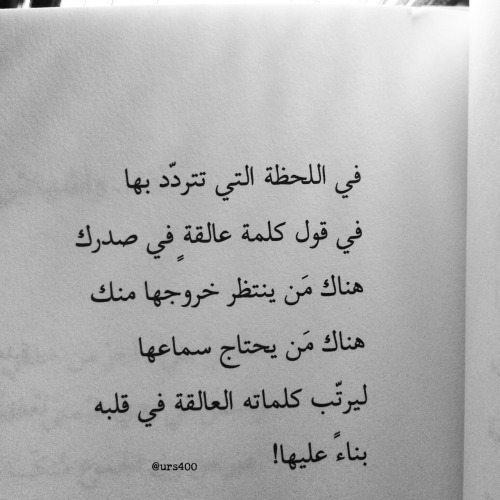 في اللحظة التي تتردّد بها
في قول كلمة عالقةٍ في صدرك
هناك مَن ينتظر خروجها منك
هناك مَن يحتاج سماعها
ليرتّب كلماته العالقة في قلبه
بناءً عليها!
@urs400